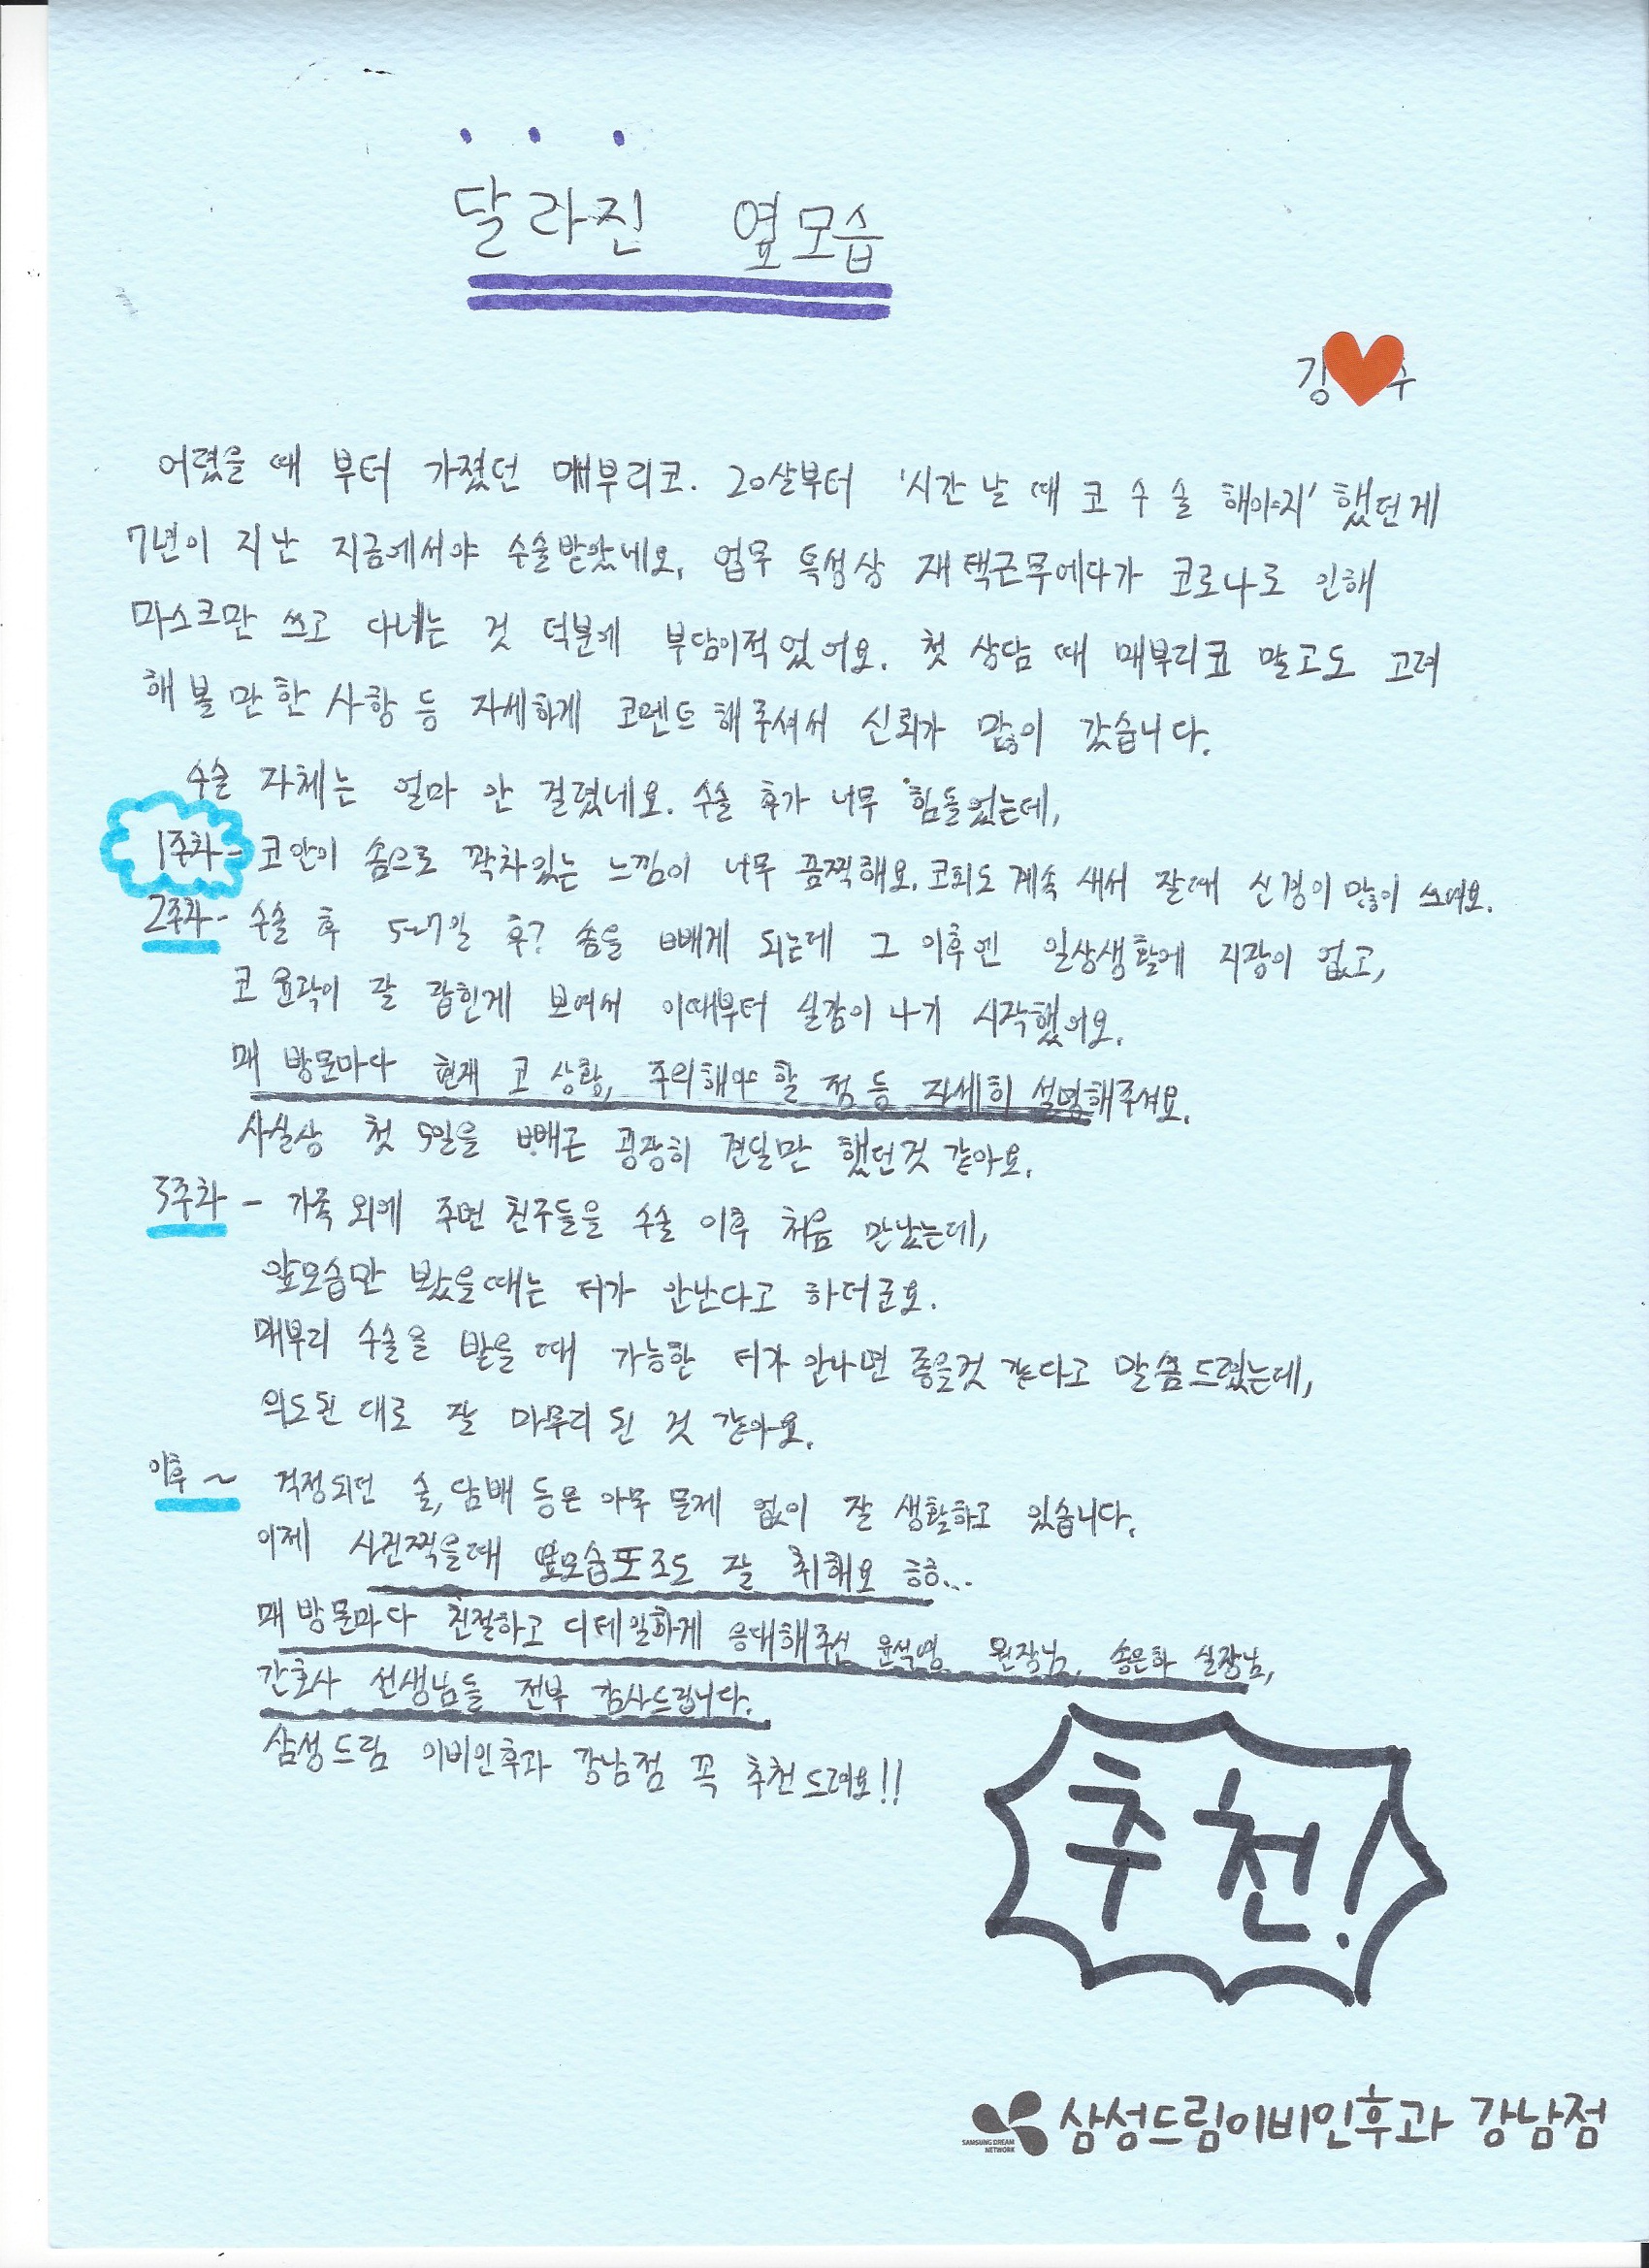 달라진 옆모습
김 수
어렸을 때 부터 가졌던 매부리코. 20살부터 '시간 날 때 코 수술 해야지' 했던게
7년이 지난 지금에서야 수술받았네요. 업무 특성상 재택근무에다가 코로나로 인해
마스크만 쓰고 다녀는 것 덕분에 부담이적었어요. 첫 상담 때 매부리코 말고도 고려
해 볼 만한 사항 등 자세하게 코멘트 해주셔서 신뢰가 많이 갔습니다.
수술 자체는 얼마 안 걸렸네요. 수술 후가 너무 힘들었는데,
1주차- 코안이 솜으로 꽉차있는 느낌이 너무 끔찍해요. 코피도 계속 새서 잘때 신경이 많이 쓰여요.
2주차- 수술 후 5~7일 후? 솜을 빼게 되는데 그 이후엔 일상생활에 지장이 없고,
코 윤곽이 잘 잡힌게 보여서 이때부터 실감이 나기 시작했어요.
매 방문마다 현재 코 상황, 주의해야 할 점 등 자세히 설명해주셔요.
사실상 첫 5일을 빼곤 굉장히 견딜만 했던것 같아요.
3주차 - 가족 외에 주변 친구들을 수술 이후 처음 만났는데,
앞모습만 봤을때는 티가 안난다고 하더군요.
매부리 수술을 받을 때 가능한 티가 안나면 좋을것 같다고 말씀드렸는데,
의도된 대로 잘 마무리 된 것 같아요.
이후 ~ 걱정되던 술, 담배 등은 아무 문제 없이 잘 생활하고 있습니다.
이제 사진찍을때 옆모습포즈도 잘 취해요 ㅎㅎ...
매 방문마다 친절하고 디테일하게 응대해주신 윤석영 원장님, 송은화 실장님,
간호사 선생님들 전부 감사드립니다.
삼성드림 이비인후과 강남점 꼭 추천드려요!!
추천!
SAMSUNG DREAM NETWORK 삼성드림이비인후과 강남점